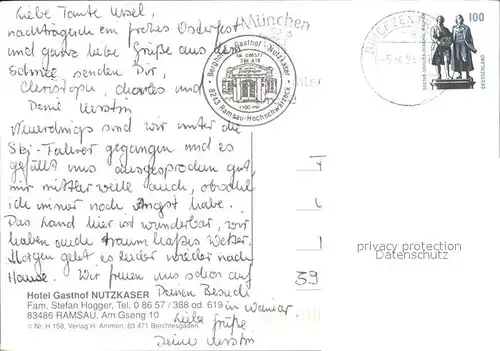 Liebe Tante Ursel,
nachträglich ein frohes Osterfest
und ganz liebe Grüße aus dem
Schnee senden Dir,
Christoph, Charles und
Deine Kerstin
Neuerdings sind wir unter die
Ski-Fahrer gegangen und es
gefällt uns ausgesprochen gut,
mir mittlerweile auch, obwohl
ich immer noch Angst habe.
Das Land hier ist wunderbar, wir
haben auch traumhaftes Wetter.
Morgen geht es leider wieder nach
Hause. Wir freuen uns schon auf
Deinen Besuch
in Weimar
Liebe Grüße
Deine Kerstin
Hotel Gasthof NUTZKASER
Fam. Stefan Hogger, Tel. 0 86 57 / 388 od. 619
83486 RAMSAU. Am Gseng 10
© Nr. H 158, Verlag H. Ammon, 83 471 Berchtesgaden
München
Berghotel - Gasthof - Nutzkaser
Tel. 08657/
388 619
1100 m
8243 Ramsau-Hochschwarzeck
BRIEFZEN
100
59
privacy protection
Datenschutz